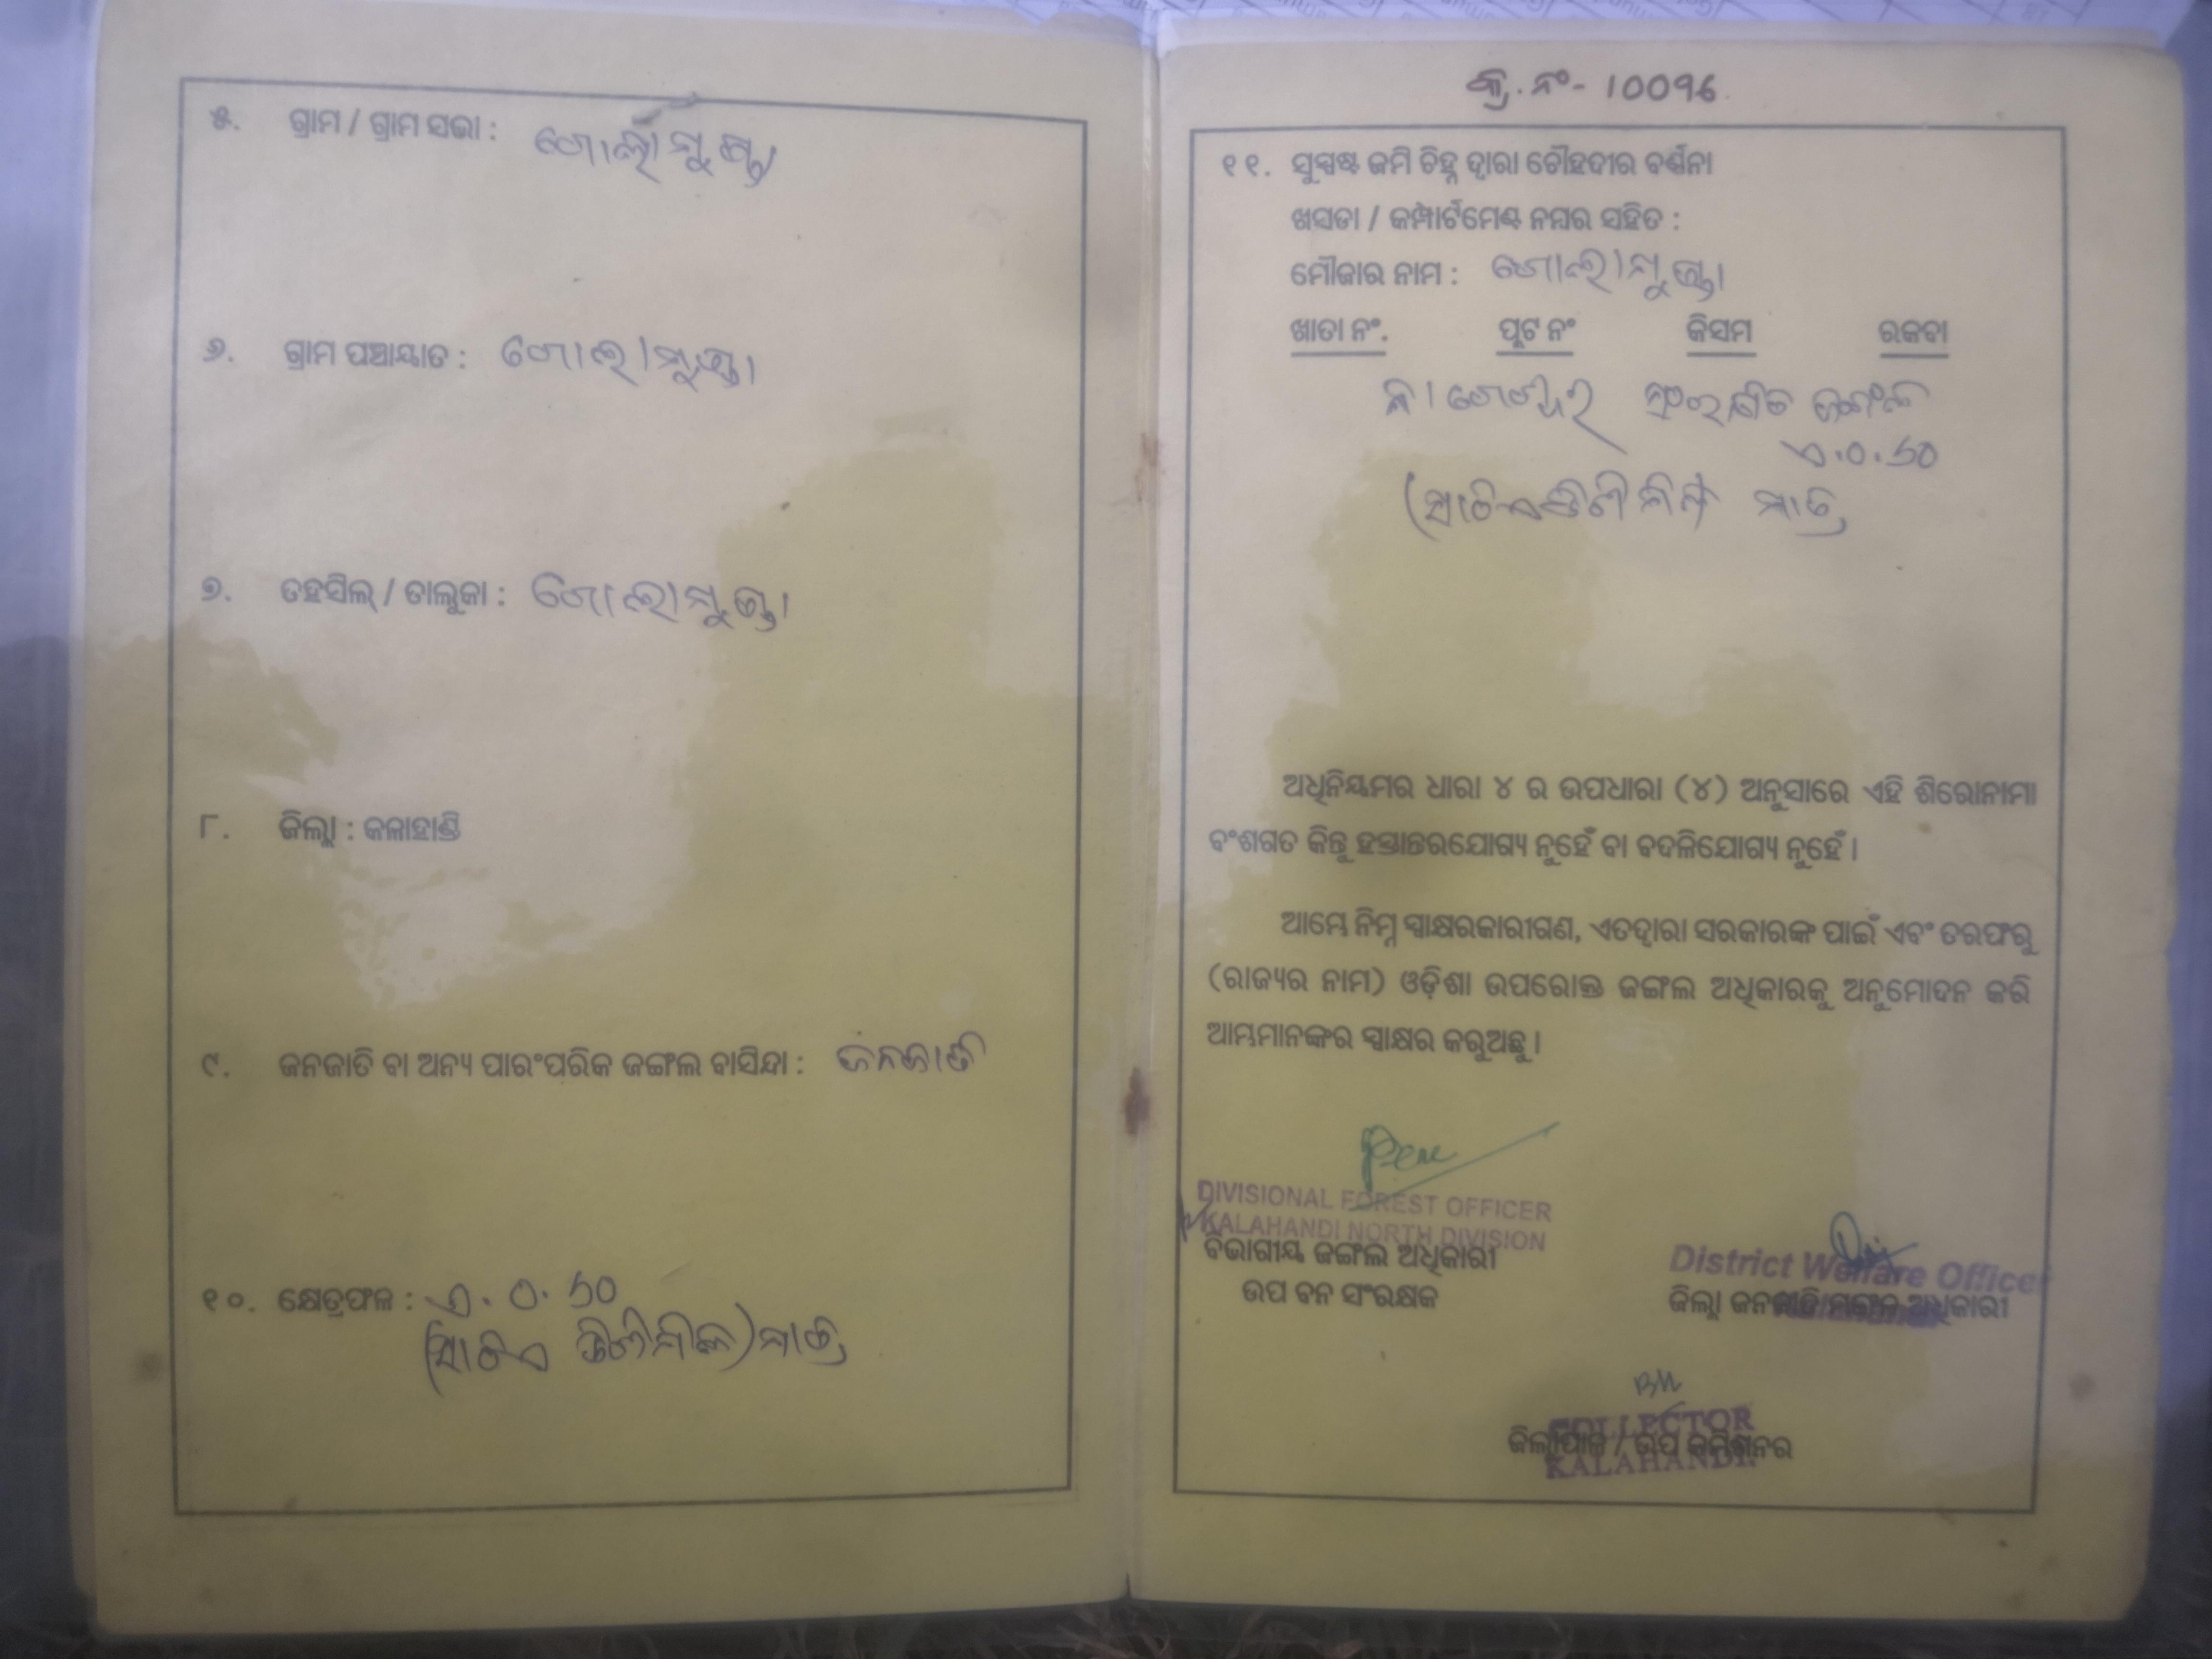 ୫. ଗ୍ରାମ / ଗ୍ରାମ ସଭା : ଗୋଲାମୁଣ୍ଡା
୬. ଗ୍ରାମ ପଞ୍ଚାୟାତ : ଗୋଲାମୁଣ୍ଡା
୭. ତହସିଲ୍ / ତାଲୁକା : ଗୋଲାମୁଣ୍ଡା
୮. ଜିଲ୍ଲା : କଳାହାଣ୍ଡି
୯. ଜନଜାତି ବା ଅନ୍ୟ ପାରଂପରିକ ଜଙ୍ଗଲ ବାସିନ୍ଦା : ଜନଜାତି
୧୦. କ୍ଷେତ୍ରଫଳ : ଏ.୦.60
ମାତ୍ର
କ୍ର. ନଂ- 10096
୧୧. ସୁସ୍ପଷ୍ଟ ଜମି ଚିହ୍ନ ଦ୍ୱାରା ଚୌହଦୀର ବର୍ଣ୍ଣନା
ଖସଡା / କମ୍ପାର୍ଟମେଣ୍ଟ ନମ୍ବର ସହିତ :
ମୌଜାର ନାମ : ଗୋଲାମୁଣ୍ଡା
ଖାତା ନଂ. ପ୍ଲଟ ନଂ କିସମ ରକବା
ସଂରକ୍ଷିତ ଜଙ୍ଗଲ
ଏ.୦.60
ମାତ୍ର
ଅଧିନିୟମର ଧାରା ୪ ର ଉପଧାରା (୪) ଅନୁସାରେ ଏହି ଶିରୋନାମା
ବଂଶଗତ କିନ୍ତୁ ହସ୍ତାନ୍ତରଯୋଗ୍ୟ ନୁହେଁ ବା ବଦଳିଯୋଗ୍ୟ ନୁହେଁ ।
ଆମ୍ଭେ ନିମ୍ନ ସ୍ୱାକ୍ଷରକାରୀଗଣ, ଏତଦ୍ୱାରା ସରକାରଙ୍କ ପାଇଁ ଏବଂ ତରଫରୁ
(ରାଜ୍ୟର ନାମ) ଓଡ଼ିଶା ଉପରୋକ୍ତ ଜଙ୍ଗଲ ଅଧିକାରକୁ ଅନୁମୋଦନ କରି
ଆମ୍ଭମାନଙ୍କର ସ୍ୱାକ୍ଷର କରୁଅଛୁ ।
DIVISIONAL FOREST OFFICER
KALAHANDI NORTH DIVISION
ବିଭାଗୀୟ ଜଙ୍ଗଲ ଅଧିକାରୀ
ଉପ ବନ ସଂରକ୍ଷକ
District Welfare Officer
ଜିଲ୍ଲା ଜନଜାତି ମଙ୍ଗଳ ଅଧିକାରୀ
COLLECTOR
ଜିଲ୍ଲାପାଳ / ଉପ କମିଶନର
KALAHANDI